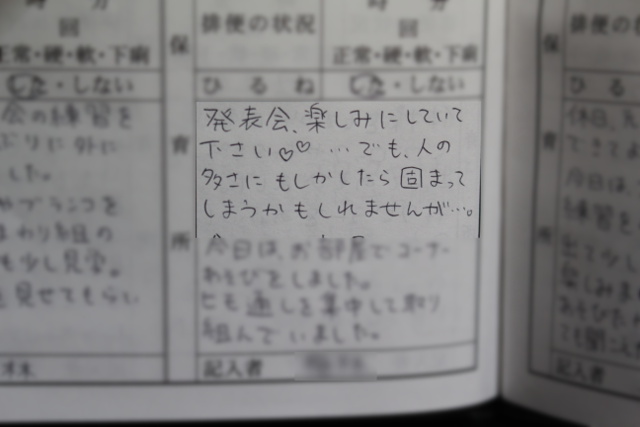 時 分
排便の状況
回
回
正常・硬・軟・下痢
正常・硬・軟・下痢
した・しない
ひるね
した・しない
ひる
保育所
会の練習を
ぶりに外に
した。
ブランコを
まわり組の
も少し見学。
を見せてもらい
発表会、楽しみにしていて
下さい♡♡ …でも、人の
多さにもしかしたら固まって
しまうかもしれませんが…。
今日は、お部屋でコーナー
あそびをしました。
ヒモ通しを集中して取り
組んでいました。
記入者
保育所
休日、
今日は
練習を
出て少し
楽しみま
あそびた
ても聞こえ
記入者